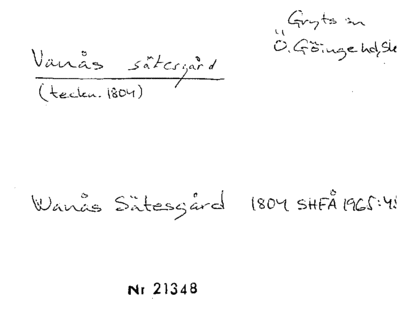 Gryts sn
Ö. Göinge hd, Sk
Vanås sätesgård
(teckn. 1804)
Wanås Sätesgård 1804 SHFÅ 1965:45
Nr 21348